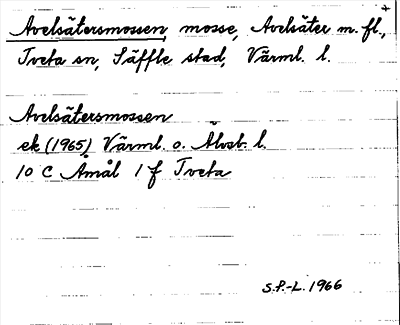 Avelsätersmossen, mosse, Avelsäter m. fl.,
Tveta sn, Säffle stad, Värml. l.
Avelsätersmossen
ek (1965) Värml. o. Älvsb. l.
10 C Åmål 1 f Tveta
S.P.-L. 1966